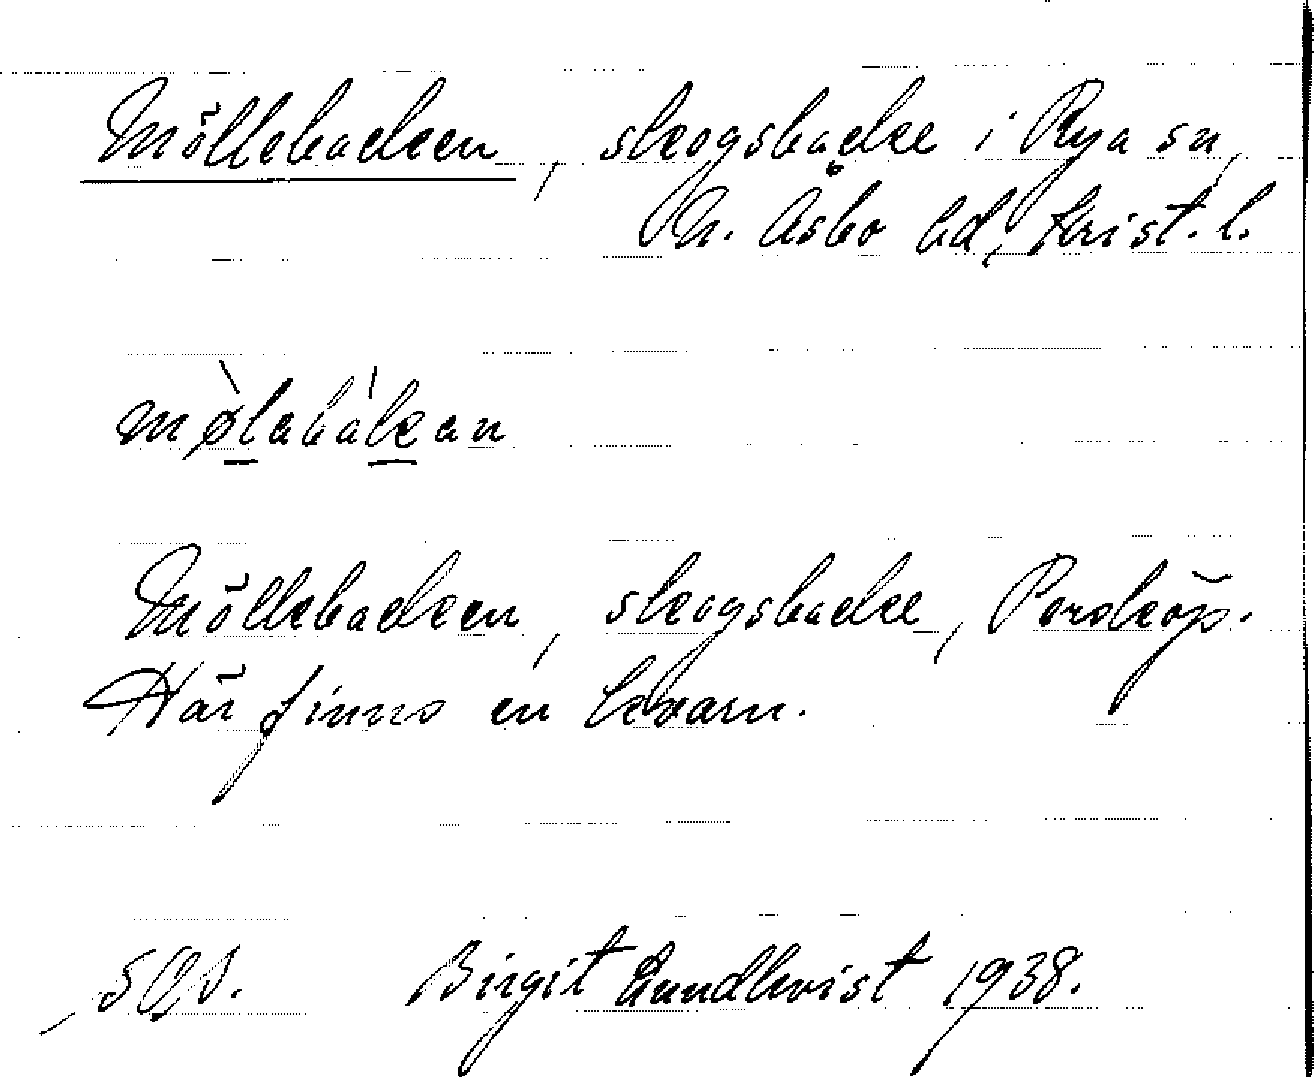 Möllebacken, skogsbacke i Rya sn,
N. Åsbo hd, Krist. l.
mø̀labákan
Möllebacken, skogsbacke, Porsköp.
Här finns en kvarn.
Birgit Lundkvist 1938.